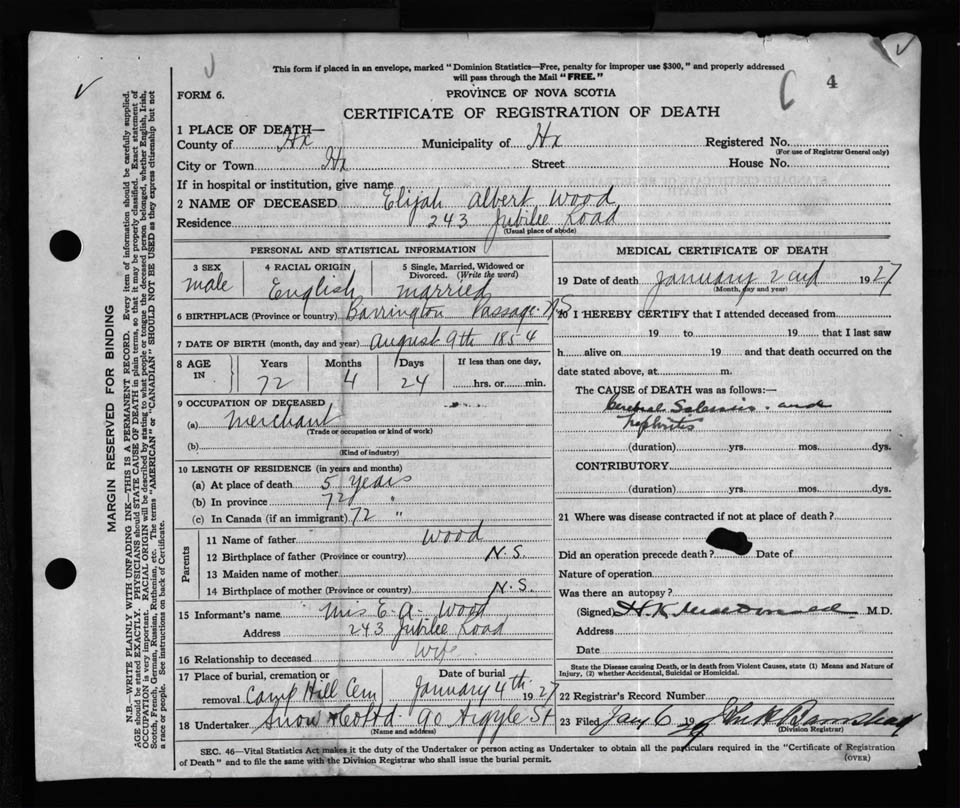 This form if placed in an envelope, marked "Dominion Statistics—Free, penalty for improper use $300," and properly addressed
will pass through the Mail "FREE."
4
FORM 6.
PROVINCE OF NOVA SCOTIA
CERTIFICATE OF REGISTRATION OF DEATH
1 PLACE OF DEATH—
County of Hx Municipality of Hx Registered No.
(For use of Registrar General only)
City or Town Hx Street House No.
If in hospital or institution, give name
2 NAME OF DECEASED Elijah Albert Wood
Residence 243 Jubilee Road
(Usual place of abode)
PERSONAL AND STATISTICAL INFORMATION
3 SEX 4 RACIAL ORIGIN 5 Single, Married, Widowed or
Divorced. (Write the word)
male English married
6 BIRTHPLACE (Province or country) Barrington Passage N.S
7 DATE OF BIRTH (month, day and year) August 9th 1854
8 AGE IN Years Months Days If less than one day,
72 4 24 hrs. or min.
9 OCCUPATION OF DECEASED
(a) Merchant
(Trade or occupation or kind of work)
(b)
(Kind of industry)
10 LENGTH OF RESIDENCE (in years and months)
(a) At place of death 5 years
(b) In province 72 "
(c) In Canada (if an immigrant) 72 "
Parents
11 Name of father Wood
12 Birthplace of father (Province or country) N.S.
13 Maiden name of mother
14 Birthplace of mother (Province or country) N.S.
15 Informant's name Mrs E. A. Wood
Address 243 Jubilee Road
16 Relationship to deceased Wife
17 Place of burial, cremation or Date of burial
removal Camp Hill Cem January 4th 1927
18 Undertaker Snow & Co Ltd 90 Argyle St
(Name and address)
MEDICAL CERTIFICATE OF DEATH
19 Date of death January 2nd 1927
(Month, day and year)
20 I HEREBY CERTIFY that I attended deceased from
19 to 19 that I last saw
h alive on 19 and that death occurred on the
date stated above, at m.
The CAUSE OF DEATH was as follows:—
Cerebral and
Nephritis
(duration) yrs. mos. dys.
CONTRIBUTORY
(duration) yrs. mos. dys.
21 Where was disease contracted if not at place of death?
Did an operation precede death? Date of
Nature of operation
Was there an autopsy?
(Signed) H. K. MacDonald M.D.
Address
Date
State the Disease causing Death, or in death from Violent Causes, state (1) Means and Nature of
Injury, (2) whether Accidental, Suicidal or Homicidal.
22 Registrar's Record Number
23 Filed Jany 6 19
(Division Registrar)
SEC. 46—Vital Statistics Act makes it the duty of the Undertaker or person acting as Undertaker to obtain all the particulars required in the "Certificate of Registration
of Death" and to file the same with the Division Registrar who shall issue the burial permit.
(OVER)
MARGIN RESERVED FOR BINDING
N.B.—WRITE PLAINLY, WITH UNFADING INK—THIS IS A PERMANENT RECORD. Every item of information should be carefully supplied.
AGE should be stated EXACTLY. PHYSICIANS should STATE CAUSE OF DEATH in plain terms, so that it may be properly classified. Exact statement of
OCCUPATION is very important. RACIAL ORIGIN will be described by stating to what people or tongue the deceased person belonged, whether English, Irish,
Scotch, French, German, Russian, Ruthenian, etc. The terms "AMERICAN" or "CANADIAN" SHOULD NOT BE USED as they express citizenship but not
a race or people. See instructions on back of Certificate.